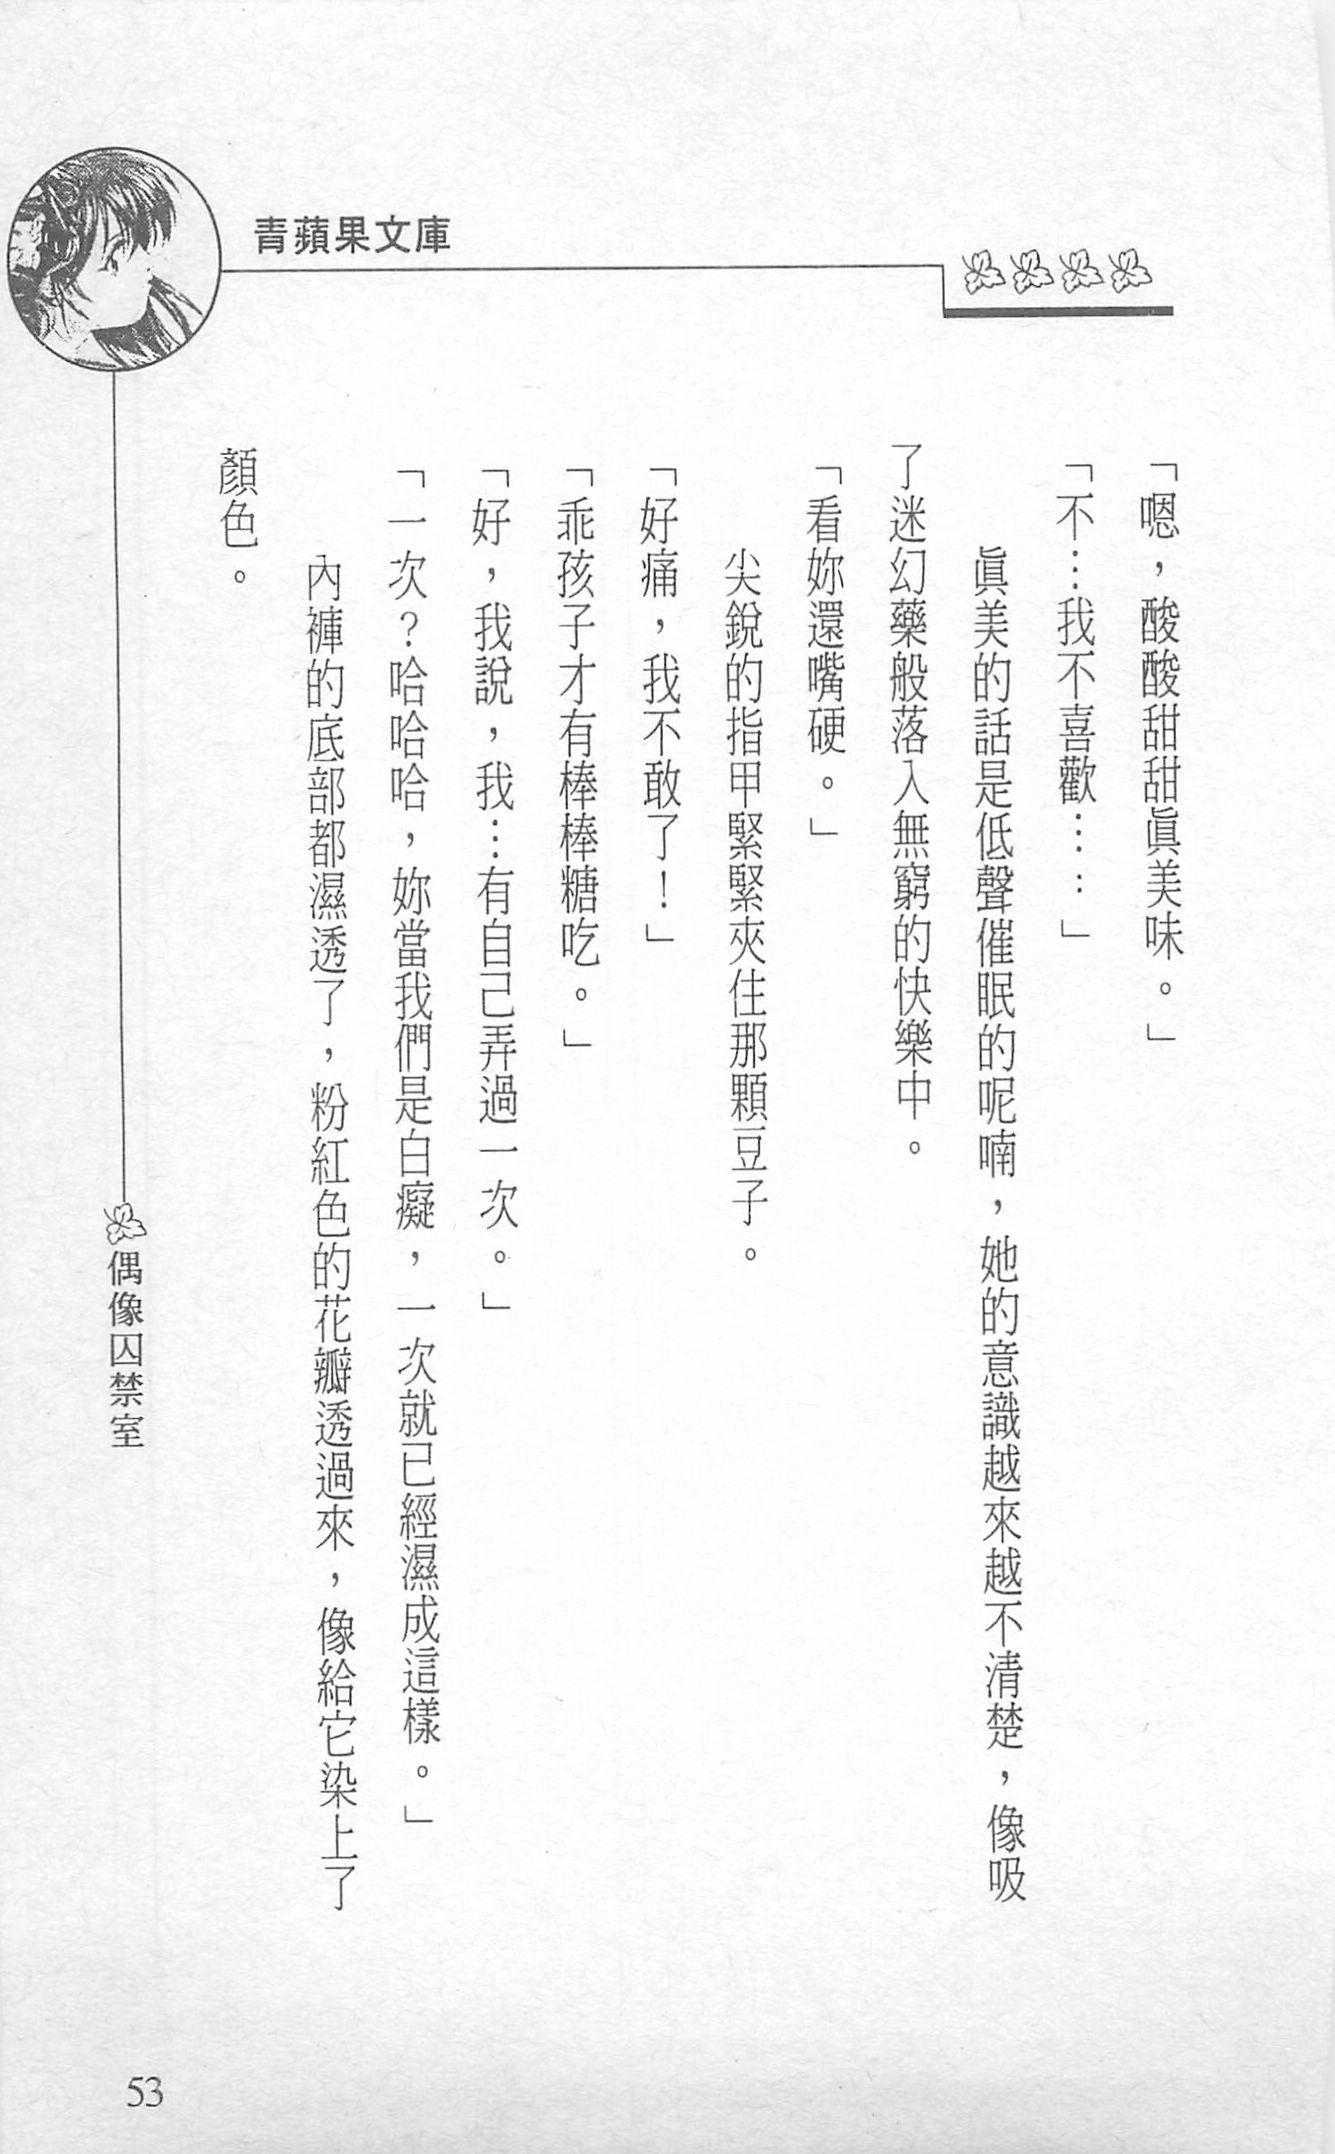 青蘋果文庫
「嗯，酸酸甜甜眞美味。」
「不…我不喜歡……」
眞美的話是低聲催眠的呢喃，她的意識越來越不清楚，像吸
了迷幻藥般落入無窮的快樂中。
「看妳還嘴硬。」
尖銳的指甲緊緊夾住那顆豆子。
「好痛，我不敢了！」
「乖孩子才有棒棒糖吃。」
「好，我說，我…有自己弄過一次。」
「一次？哈哈哈，妳當我們是白癡，一次就已經濕成這樣。」
內褲的底部都濕透了，粉紅色的花瓣透過來，像給它染上了
顏色。
偶像囚禁室
53